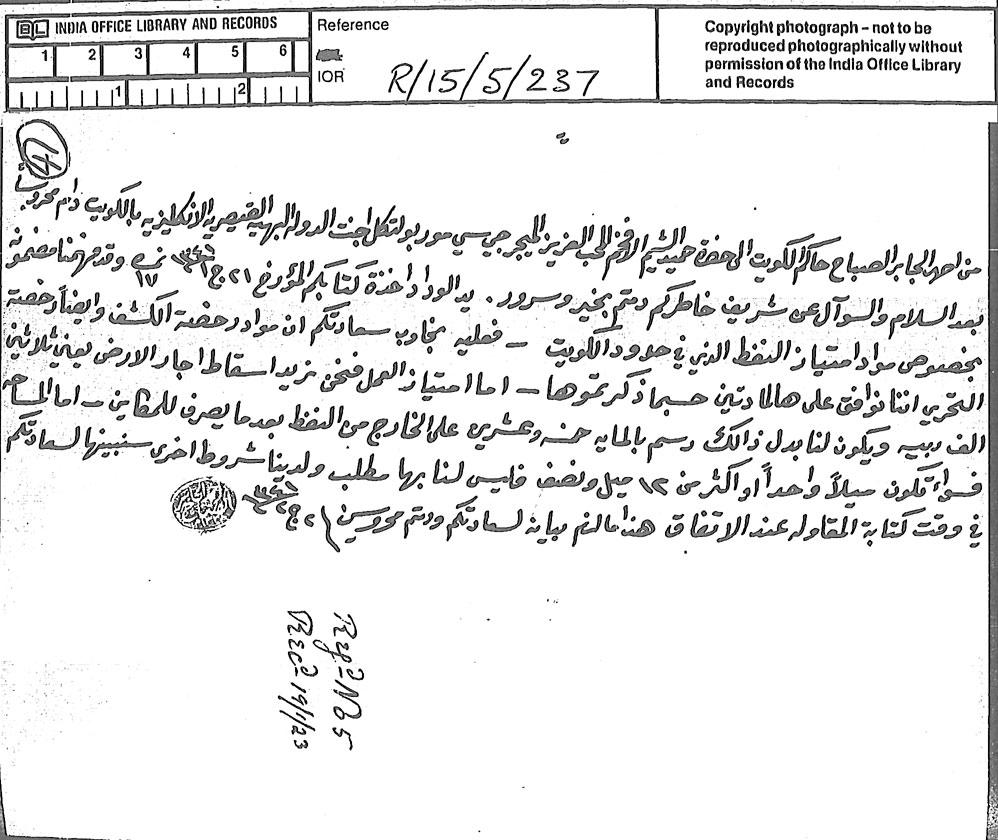 INDIA OFFICE LIBRARY AND RECORDS
1 2 3 4 5 6
1 2
Reference
IOR R/15/5/237
Copyright photograph – not to be
reproduced photographically without
permission of the India Office Library
and Records
من احمد الجابر الصباح حاكم الكويت الى حضرة حميد الشيم الافخم المحب العزيز الميجر جي سي مور بولتكل اجنت الدولة البهية القيصرية الانكليزيه بالكويت دام محروساً
بعد السلام والسوآل عن شريف خاطركم دمتم بخير وسرور . بيد الوداد اخذة كتابكم المؤرخ ٢١ ج١ ١٣٤١ نمرة ١٧ وقد فهمنا مضمونه
بخصوص مواد امتياز النفط الذي في حدود الكويت – فعليه نجاوب سعادتكم ان مواد رخصة الكشف وايضاً رخصة
التحري اننا نوافق على هالمادتين حسبما ذكرتموها – اما امتياز العمل فنحن نريد اسقاط اجار الارض يعني ثلاثين
الف ربيه ويكون لنا بدل ذالك رسم بالمايه خمسه وعشرين على الخارج من النفط بعد ما يصرف للمكاين – اما المساحه
فسواء تكون ميلاً واحداً او اكثر من ١٢ ميل ونصف فليس لنا بها مطلب ولدينا شروط اخرى سنبينها لسعادتكم
في وقت كتابة المقاوله عند الاتفاق هذا ما لزم بيانه لسعادتكم ودمتم محروسين ٢ ج٢ ١٣٤١
Regd No 5
Recd 19/1/23